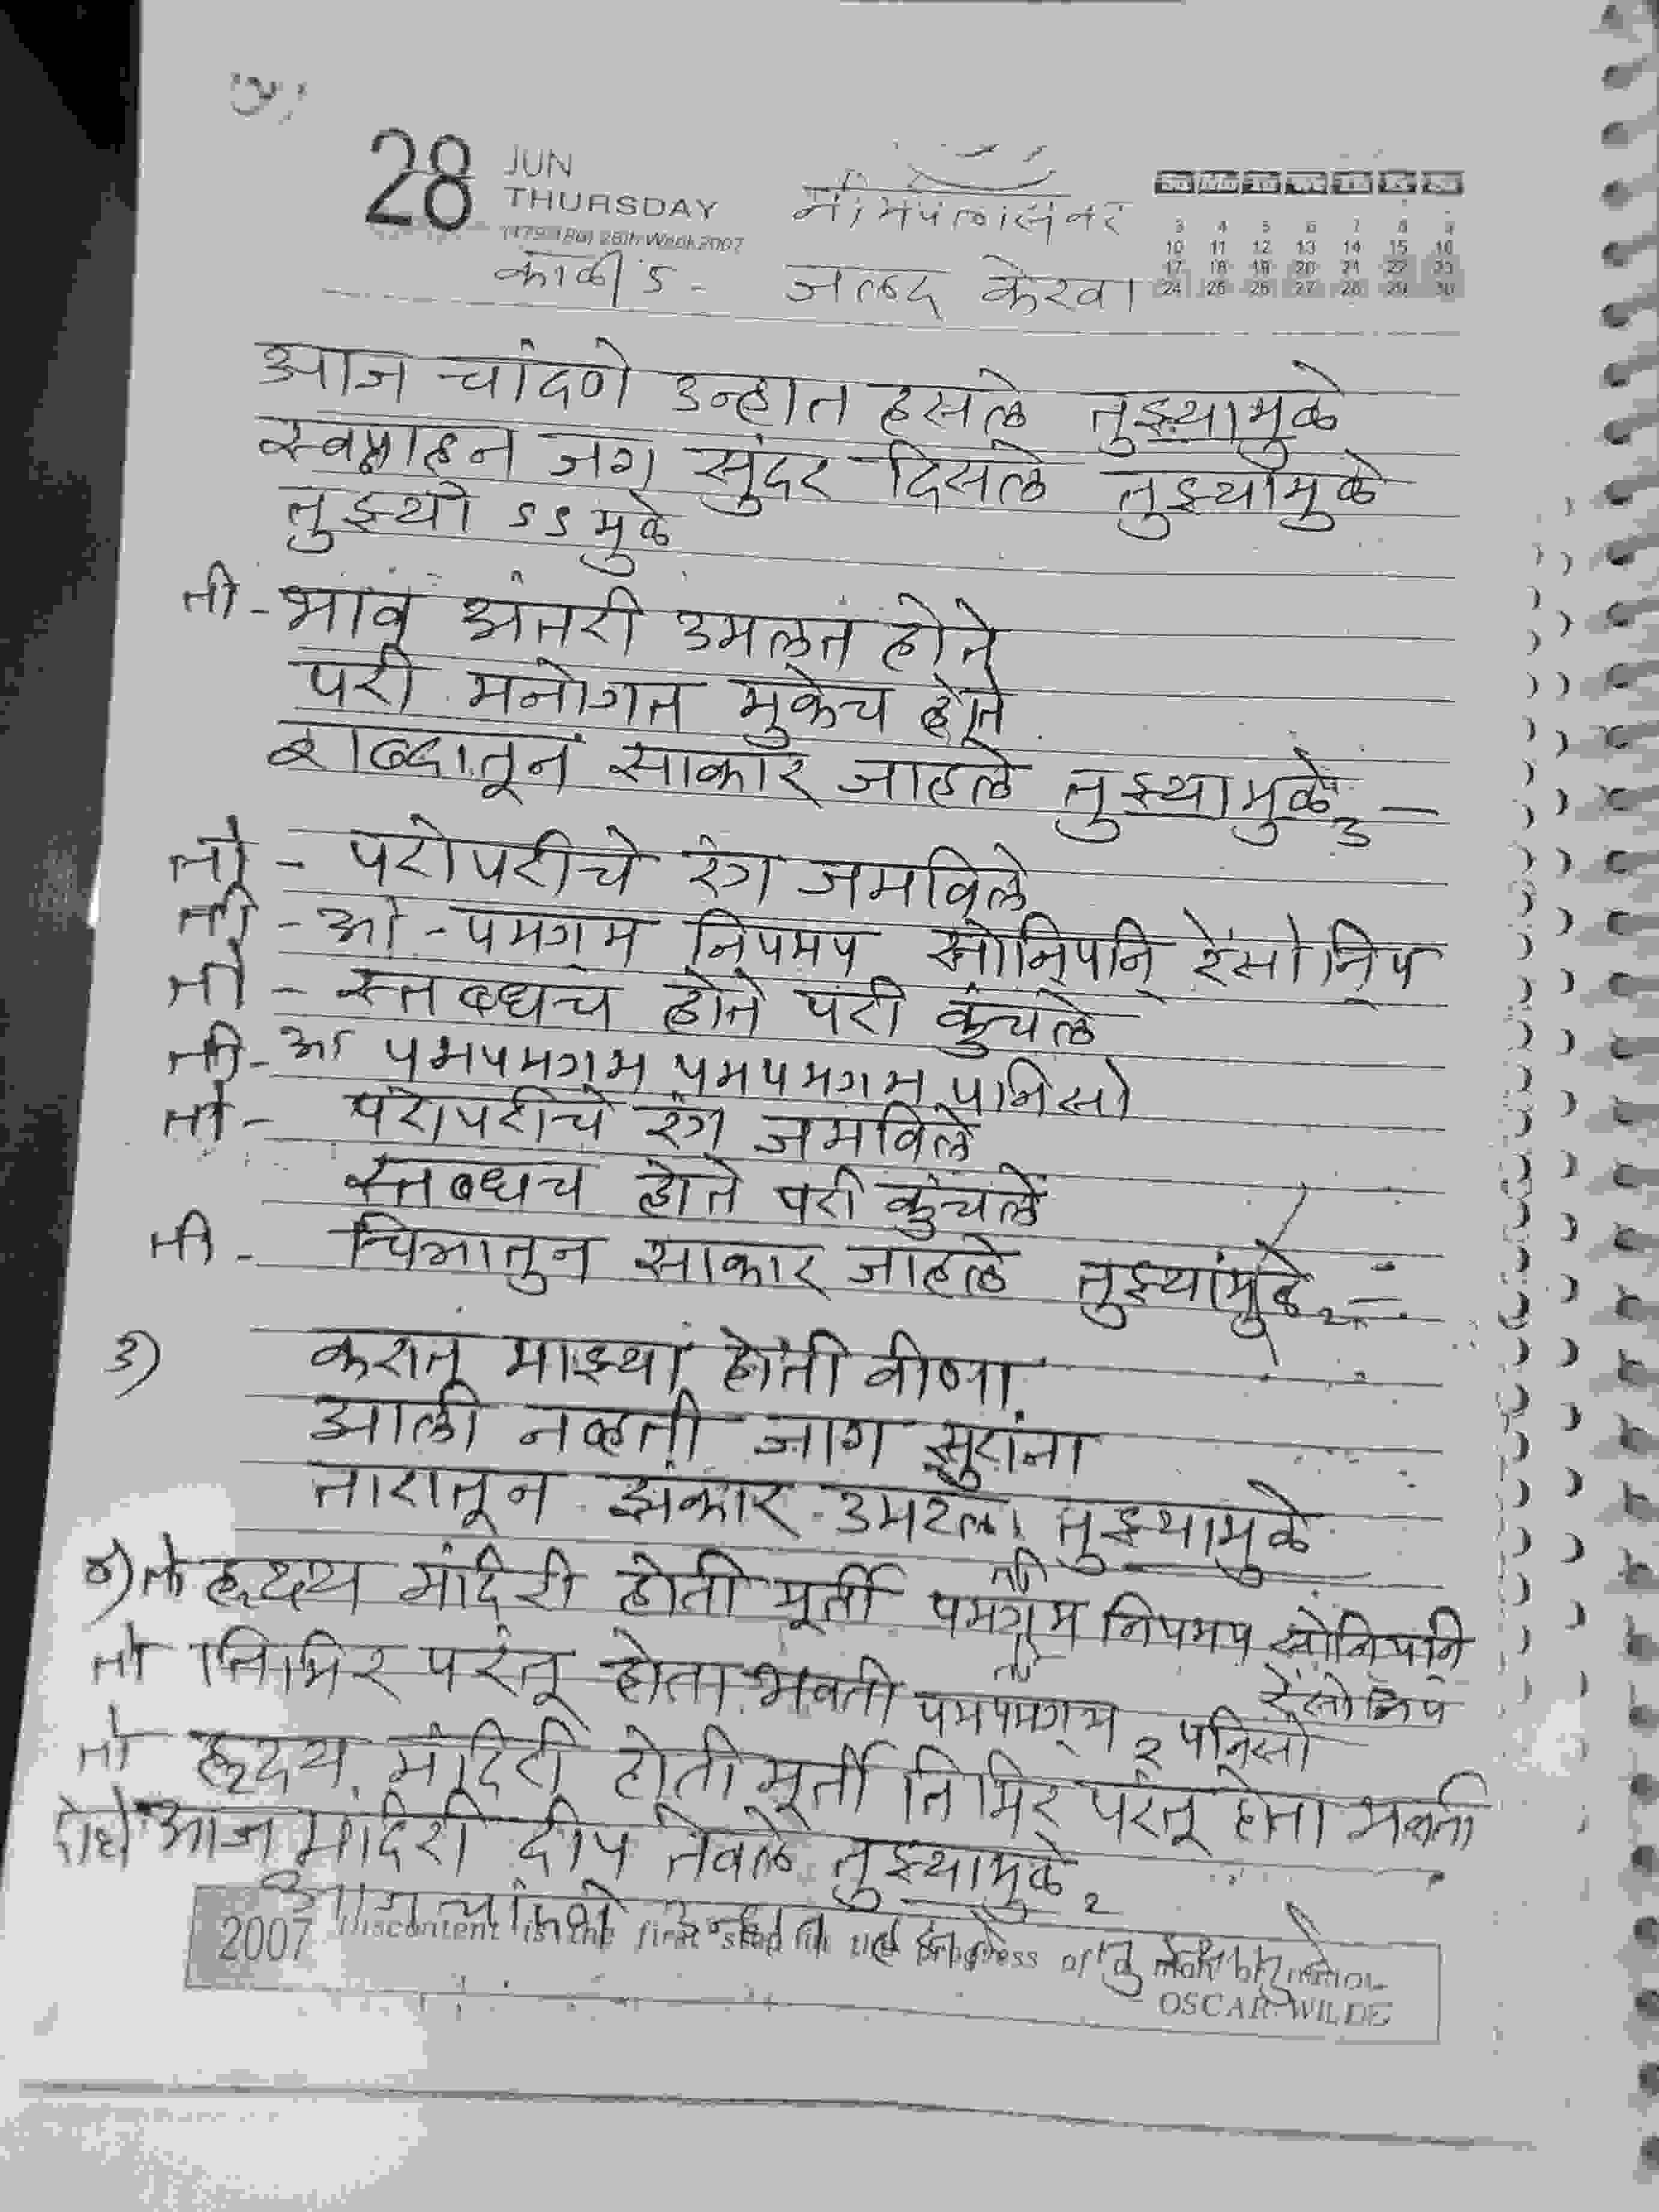 28 JUN
THURSDAY
Su Mo Tu We Th Fr Sa
3 4 5 6 7 8 9
10 11 12 13 14 15 16
17 18 19 20 21 22 23
24 25 26 27 28 29 30
काळी 5 - जलद केरवा
आज चांदणे उन्हात हसले तुझ्यामुळे
स्वप्नाहून जग सुंदर दिसले तुझ्यामुळे
तुझ्या ऽऽ मुळे
ती - भाव अंतरी उमलत होते
परी मनोगत मुकेच होते
शब्दातून साकार जाहले तुझ्यामुळे
तो - परोपरीचे रंग जमविले
ती - आ - पमग्म नि्पमप सांनि्पनि् रेंसां नि्प
तो - स्तब्धच होते परी कुंचले
ती - आ पमपमग्म पमपमगम पनिसां
तो - परोपरीचे रंग जमविले
स्तब्धच होते परी कुंचले
ती - चित्रातुन साकार जाहले तुझ्यामुळे 2 -
3) करात माझ्या होती वीणा
आली नव्हती जाग सुरांना
तारातून झंकार उमटला तुझ्यामुळे
४) तो हृदय मंदिरी होती मूर्ती ती पमग्म निपमप सांनि्पनि्
रेंसां निप
तो तिमिर परंतू होता भवती ती पमपमग्म 2 पनिसां
तो हृदय मंदिरी होती मूर्ती तिमिर परंतू होता भवती
दोघे आज मंदिरी दीप तेवले तुझ्यामुळे 2
आज चांदणे उन्हात हसले तुझ्यामुळे
2007 Discontent is the first step in the progress of a man or nation
OSCAR WILDE